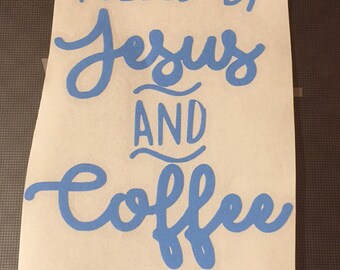 Jesus
AND
Coffee